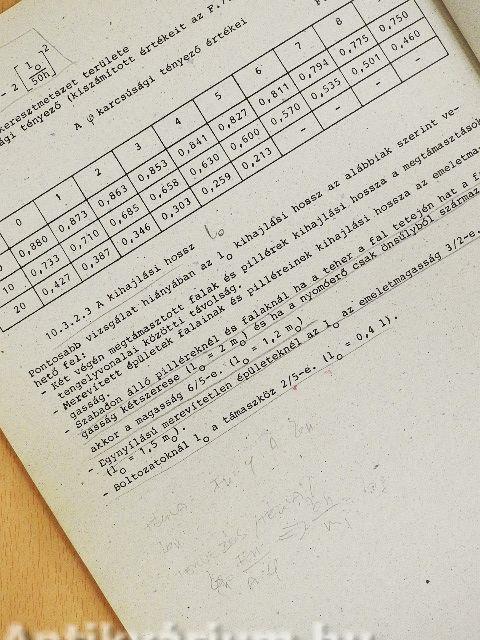 - 2 [ l₀ / 50h ]²
keresztmetszet területe
sági tényező (kiszámított értékeit az F.7.
A φ karcsúsági tényező értékei
0 1 2 3 4 5 6 7 8
0,880 0,873 0,863 0,853 0,841 0,827 0,811 0,794 0,775 0,750
10 0,733 0,710 0,685 0,658 0,630 0,600 0,570 0,535 0,501 0,460
20 0,427 0,387 0,346 0,303 0,259 0,213 - - - -
10.3.2.3 A kihajlási hossz l₀
Pontosabb vizsgálat hiányában az l₀ kihajlási hossz az alábbiak szerint ve-
hető fel:
- Két végén megtámasztott falak és pillérek kihajlási hossza a megtámasztások
tengelyvonalai közötti távolság.
- Merevített épületek falainak és pilléreinek kihajlási hossza az emeletma-
gasság.
- Szabadon álló pilléreknél és falaknál ha a teher a fal tetején hat a
gasság kétszerese (l₀ = 2 m₀) és ha a nyomóerő csak önsúlyból származ
akkor a magasság 6/5-e. (l₀ = 1,2 m₀)
- Egynyílású merevítetlen épületeknél az l₀ az emeletmagasság 3/2-e.
(l₀ = 1,5 m₀).
- Boltozatoknál l₀ a támaszköz 2/5-e. (l₀ = 0,4 l).
Antikvárium.hu